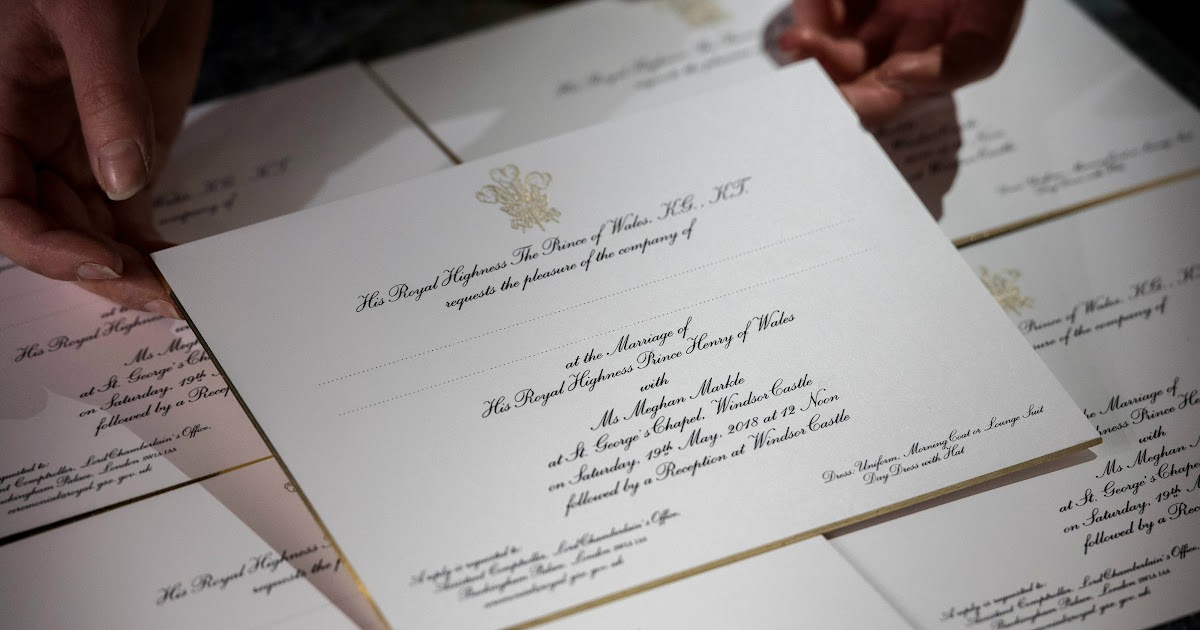 His Royal Highness The Prince of Wales, K.G., K.T.
requests the pleasure of the company of
at the Marriage of
His Royal Highness Prince Henry of Wales
with
Ms Meghan Markle
at St. George's Chapel, Windsor Castle
on Saturday, 19th May, 2018 at 12 Noon
followed by a Reception at Windsor Castle
Dress: Uniform, Morning Coat or Lounge Suit
Day Dress with Hat
A reply is requested to:
Assistant Comptroller, Lord Chamberlain's Office,
Buckingham Palace, London SW1A 1AA
ceremonial@royal.gsx.gov.uk
His Royal Highness
requests the
K.G., K.T.
company of
His Royal High
Ms Megh
at St. George's Cha
on Saturday, 19th
followed by a Rece
requested to:
Comptroller, Lord Chamberlain's Office,
Buckingham Palace, London SW1A 1AA
His Royal Highness
requests the p
Prince of Wales, K.G., K.
ure of the company of
the Marriage of
hness Prince Henr
with
Ms Meghan M
at St. George's Chap
on Saturday, 19th M
followed by a Recep
A reply is requested to:
Assistant Comptroller, Lord Chamberlain's Office,
Buckingham Palace, London SW1A 1AA